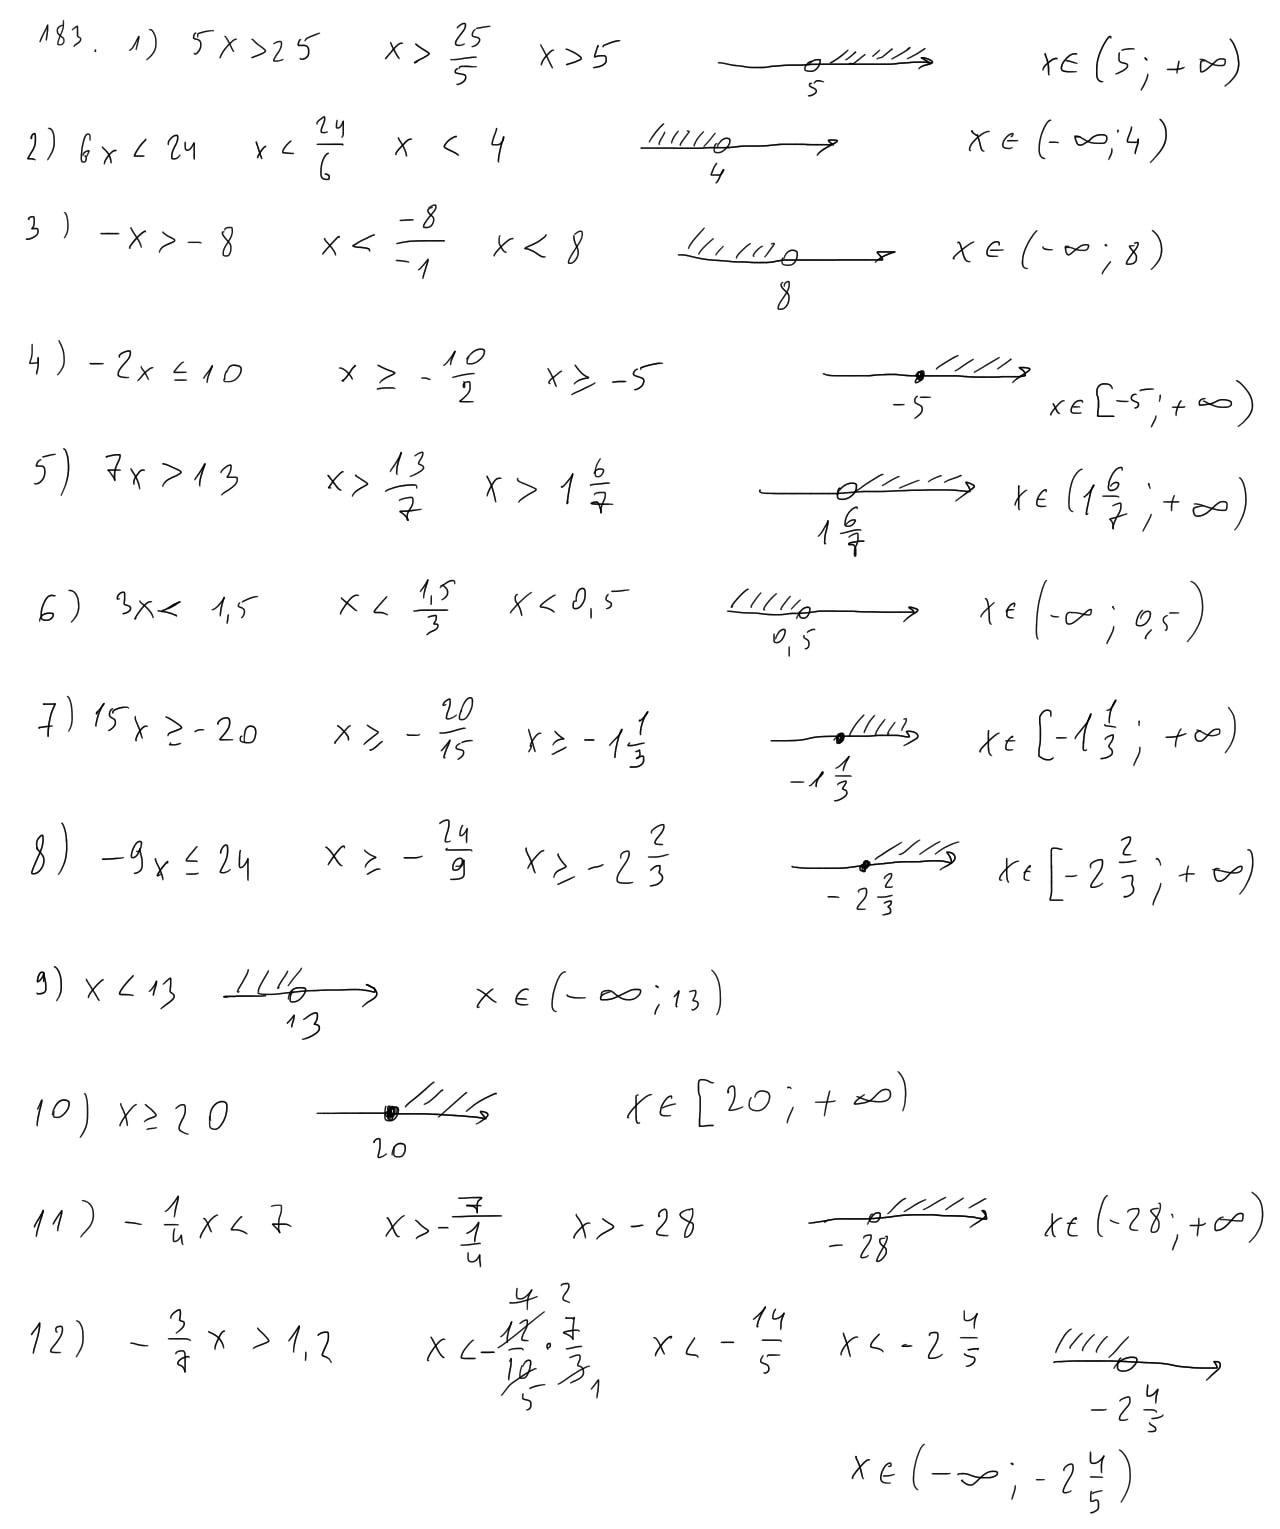 183. 1) 5x>25 x>25/5 x>5 5 x∈(5;+∞)
2) 6x<24 x<24/6 x<4 4 x∈(-∞;4)
3) -x>-8 x<-8/-1 x<8 8 x∈(-∞;8)
4) -2x≤10 x≥-10/2 x≥-5 -5 x∈[-5;+∞)
5) 7x>13 x>13/7 x>1 6/7 1 6/7 x∈(1 6/7;+∞)
6) 3x<1,5 x<1,5/3 x<0,5 0,5 x∈(-∞;0,5)
7) 15x≥-20 x≥-20/15 x≥-1 1/3 -1 1/3 x∈[-1 1/3;+∞)
8) -9x≤24 x≥-24/9 x≥-2 2/3 -2 2/3 x∈[-2 2/3;+∞)
9) x<13 13 x∈(-∞;13)
10) x≥20 20 x∈[20;+∞)
11) -1/4x<7 x>-7/(1/4) x>-28 -28 x∈(-28;+∞)
12) -3/7x>1,2 x<-12/10·7/3 4 2 5 1 x<-14/5 x<-2 4/5 -2 4/5
x∈(-∞;-2 4/5)